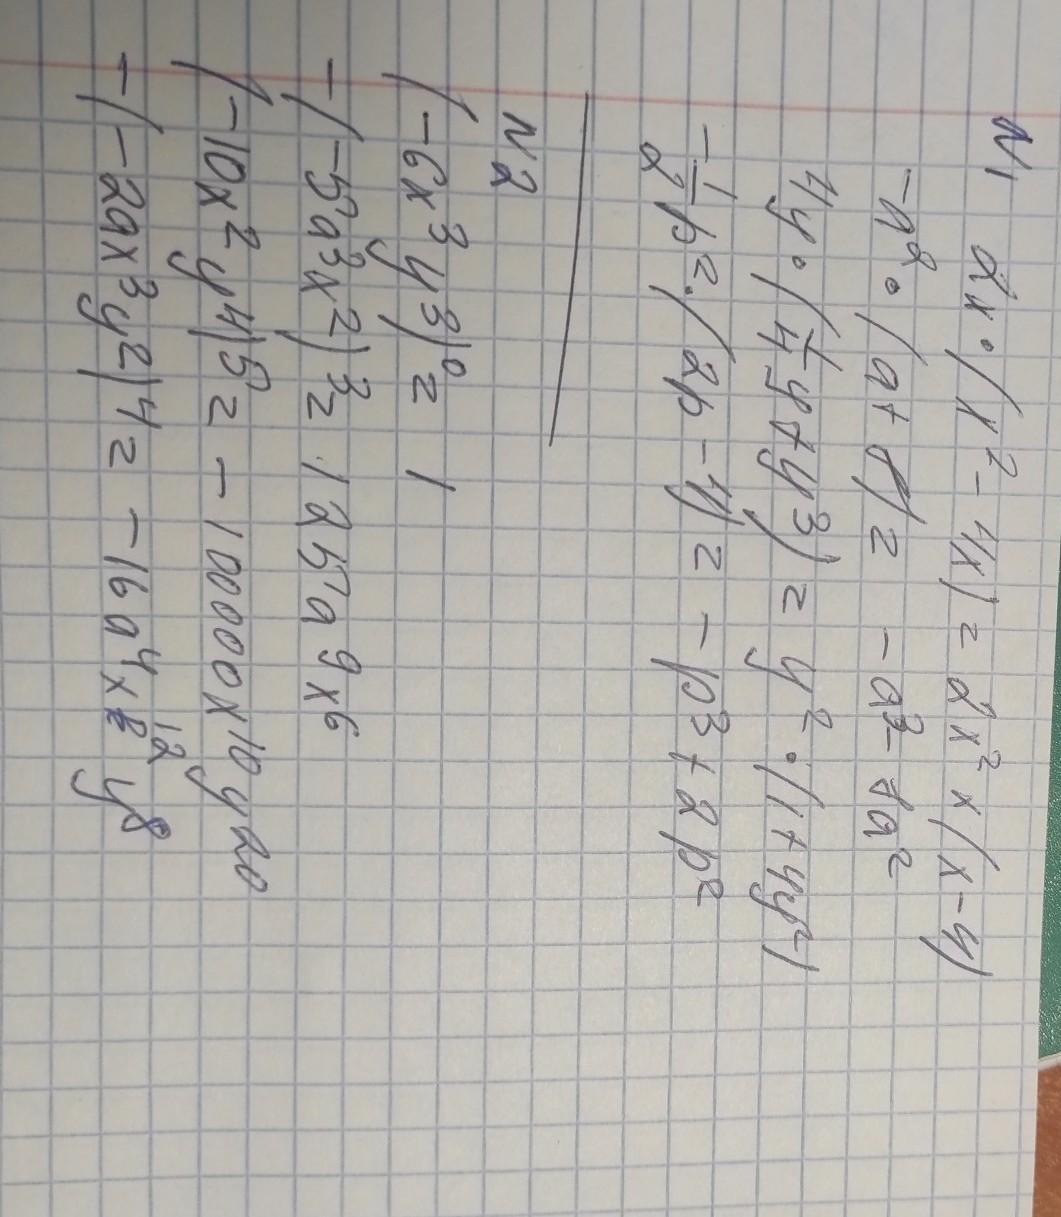 N1 2x·(x²-4x)=2x²x(x-4)
-a²·(a+1)=-a³-1a²
4y·(1/4y+y³)=y²·(1+4y²)
-1/2p²·(2p-4)=-p³+2p²
N2
(-6x³y³)⁰=1
-(-5a³x²)³=125a⁹x⁶
(-10x²y⁴)⁵=-100000x¹⁰y²⁰
-(-2ax³y²)⁴=-16a⁴x¹²y⁸